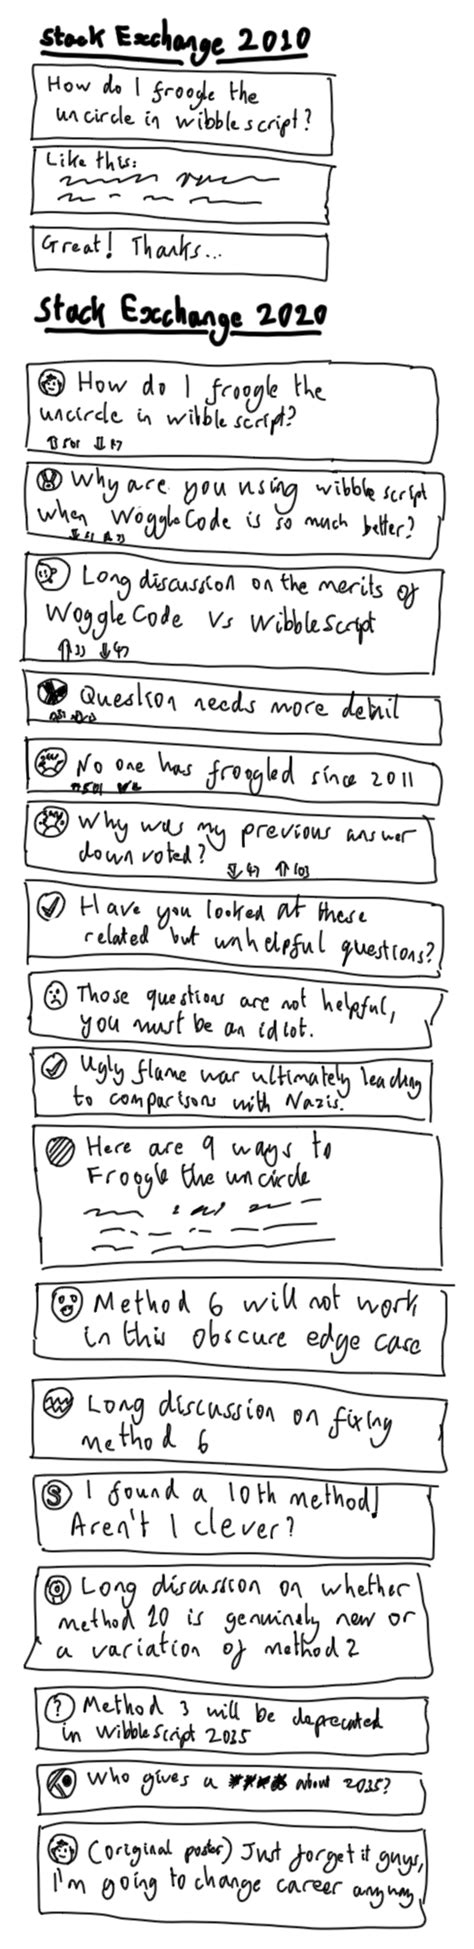 Stack Exchange 2010
How do I froogle the
uncircle in wibblescript?
Like this:
Great! Thanks...
Stack Exchange 2020
How do I froogle the
uncircle in wibblescript?
Why are you using wibblescript
when WoggleCode is so much better?
Long discussion on the merits of
WoggleCode Vs WibbleScript
Question needs more detail
No one has froogled since 2011
Why was my previous answer
downvoted?
Have you looked at these
related but unhelpful questions?
Those questions are not helpful,
you must be an idiot.
Ugly flame war ultimately leading
to comparisons with Nazis.
Here are 9 ways to
Froogle the uncircle
Method 6 will not work
in this obscure edge case
Long discussion on fixing
method 6
I found a 10th method!
Aren't I clever?
Long discussion on whether
method 10 is genuinely new or
a variation of method 2
Method 3 will be deprecated
in WibbleScript 2035
Who gives a about 2035?
(original poster) Just forget it guys,
I'm going to change career anyway